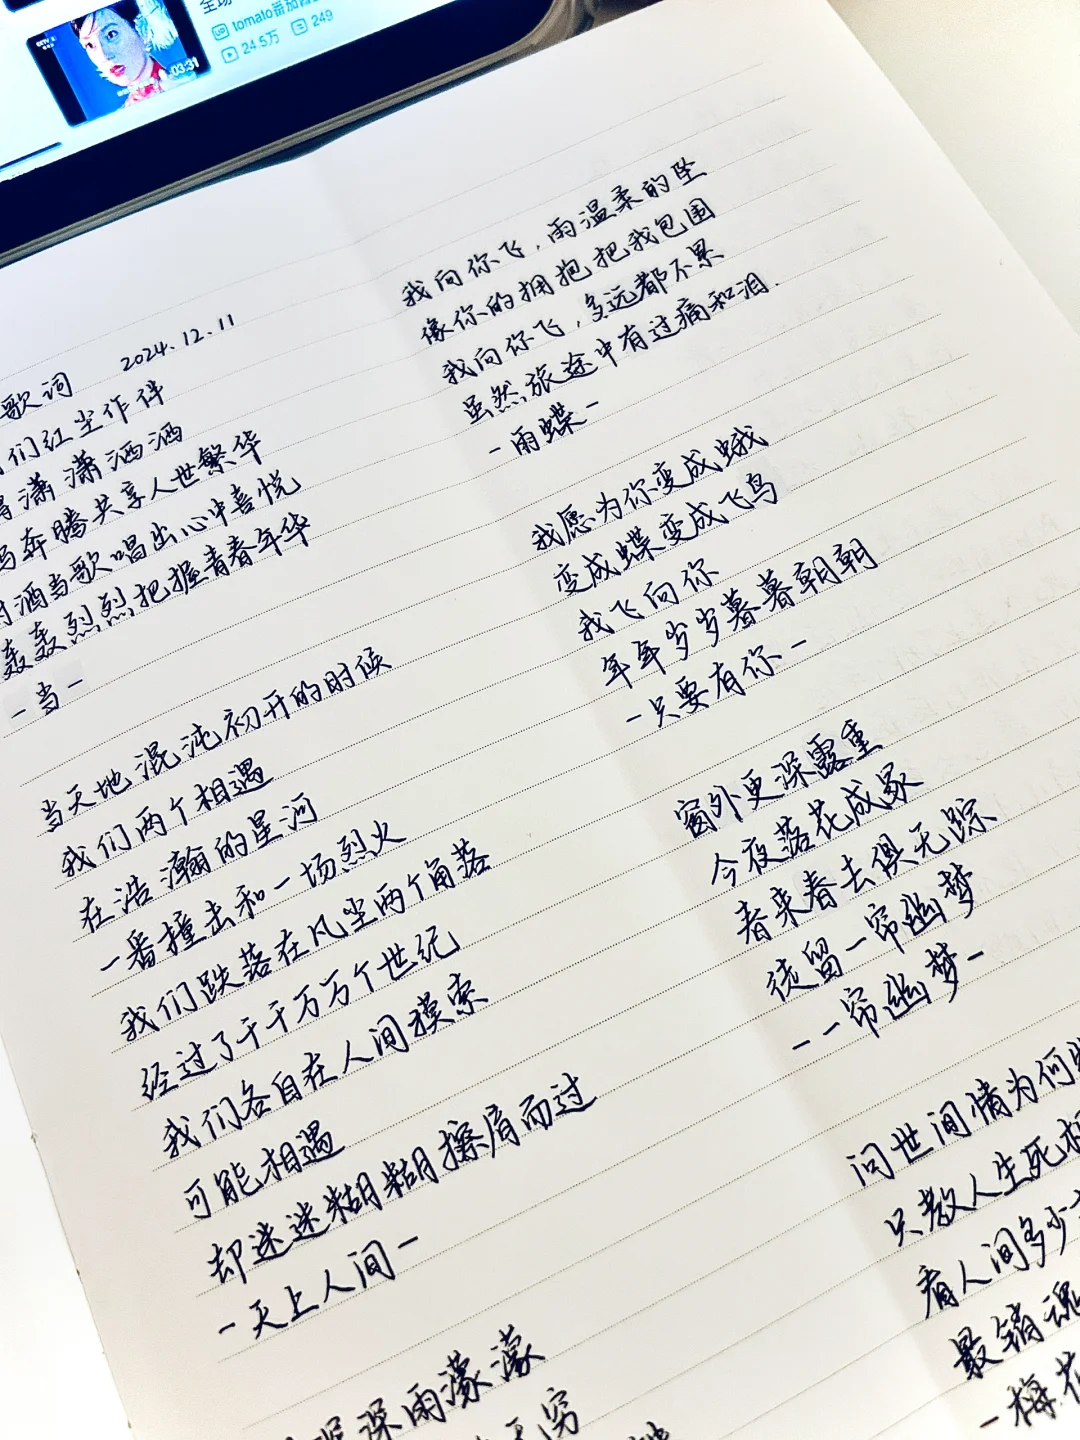 全场
tomato番加
24.5万
249
03:31
歌词 2024.12.11
们红尘作伴
得潇潇洒洒
马奔腾共享人世繁华
酒当歌唱出心中喜悦
轰轰烈烈把握青春年华
-当-
当天地混沌初开的时候
我们两个相遇
在浩瀚的星河
一番撞击和一场烈火
我们跌落在凡尘两个角落
经过了千千万万个世纪
我们各自在人间摸索
可能相遇
却迷迷糊糊擦肩而过
-天上人间-
深雨濛濛
天穷
我向你飞,雨温柔的坠
像你的拥抱把我包围
我向你飞,多远都不累
虽然旅途中有过痛和泪.
-雨蝶-
我愿为你变成蛾
变成蝶变成飞鸟
我飞向你
年年岁岁暮暮朝朝
-只要有你-
窗外更深露重
今夜落花成冢
春来春去俱无踪
徒留一帘幽梦
-一帘幽梦-
问世间情为何
只教人生死
看人间多少
最销魂
-梅花